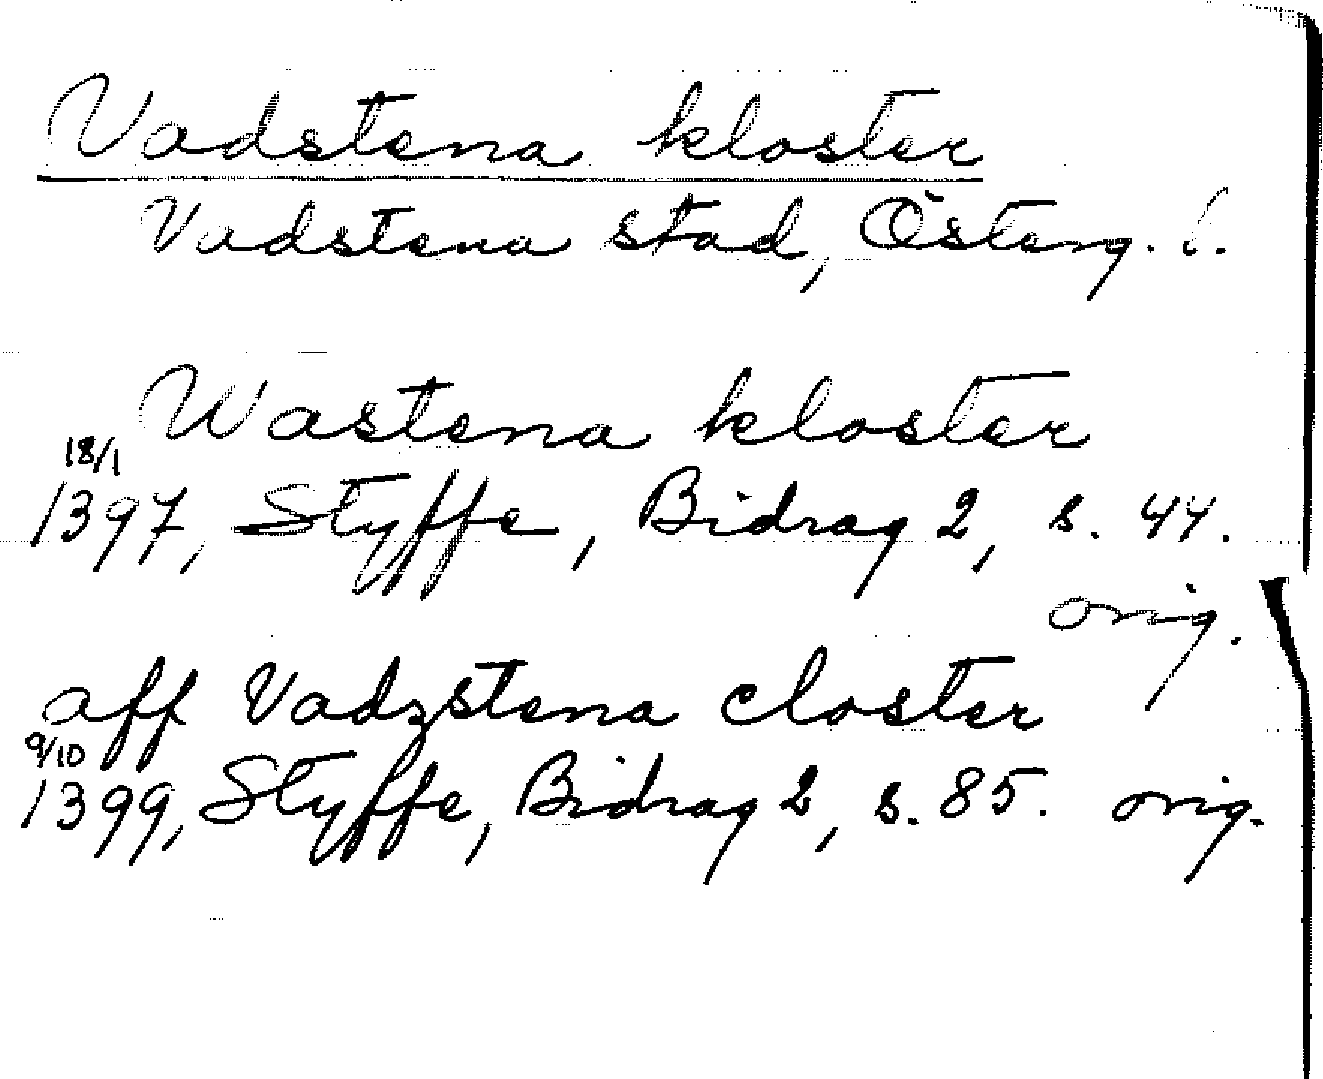 Vadstena kloster
Vadstena stad, Österg. l.
Wastena kloster
18/1
1397, Styffe, Bidrag 2, s. 44.
orig.
aff Vadzstena closter
9/10
1399, Styffe, Bidrag 2, s. 85. orig.